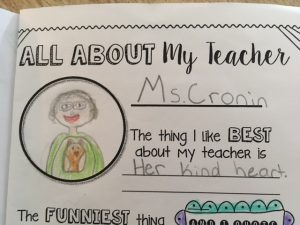 ALL ABOUT My Teacher
Ms. Cronin
The thing I like BEST
about my teacher is
Her kind heart.
The FUNNIEST thing